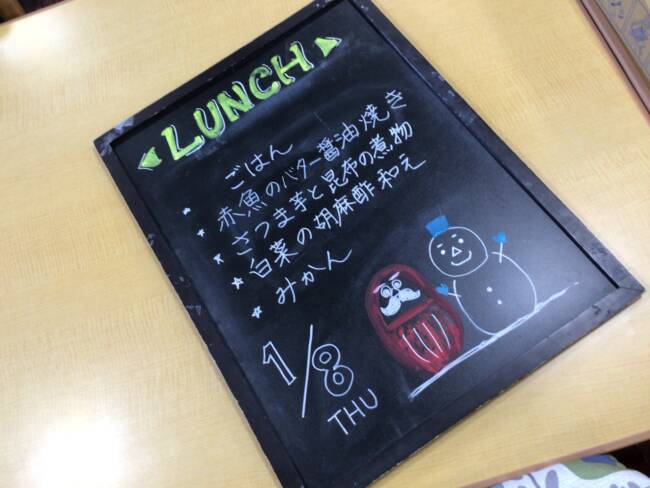 LUNCH
☆ ごはん
☆ 赤魚のバター醤油焼き
☆ さつま芋と昆布の煮物
☆ 白菜の胡麻酢和え
☆ みかん
1/8
THU